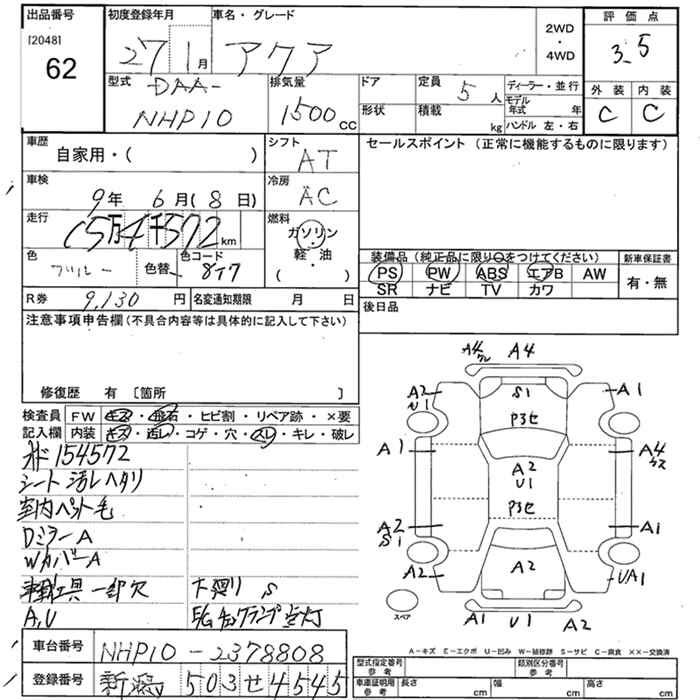 出品番号
[2048]
62
初度登録年月
27 1月
車名・グレード
アクア
2WD
・
4WD
評価点
3.5
外装 内装
C C
型式
DAA-
NHP10
排気量
1500cc
ドア
形状
定員
5人
積載
kg
ディーラー・並行
モデル年式 年
ハンドル 左・右
車歴
自家用・( )
シフト
AT
セールスポイント (正常に機能するものに限ります)
車検
9年 6月(8日)
冷房
AC
走行
15万4千572km
燃料
ガソリン
・
軽・油
( )
色
ブルー
色替
色コード
8T7
装備品(純正品に限り○をつけてください)
PS PW ABS エアB AW
SR ナビ TV カワ
新車保証書
有・無
R券 9,130円
名変通知期限 月 日
後日品
注意事項申告欄(不具合内容等は具体的に記入して下さい)
修復歴 有 〔箇所 〕
検査員記入欄
FW キズ・飛石・ヒビ割・リペア跡・×要
内装 キズ・汚レ・コゲ・穴・スレ・キレ・破レ
154572
シート汚レヘタリ
室内ペット毛
DミラーA
WカバーA
車載工具一部欠
A,U
下廻りS
E/Gチェックランプ点灯
A4
A4
S1
A2
U1
A1
P3セ
A1
A4
A2
U1
P3セ
A2
S1
A1
A2
A2
UA1
スペア
A1
U1
A2
A-キズ E-エクボ U-凹み W-補修跡 S-サビ C-腐食 ××-交換済
車台番号
NHP10-2378808
登録番号
新潟 503せ4545
型式指定番号
参考
類別区分番号
参考
車庫証明用
参考
長さ cm
幅 cm
高さ cm